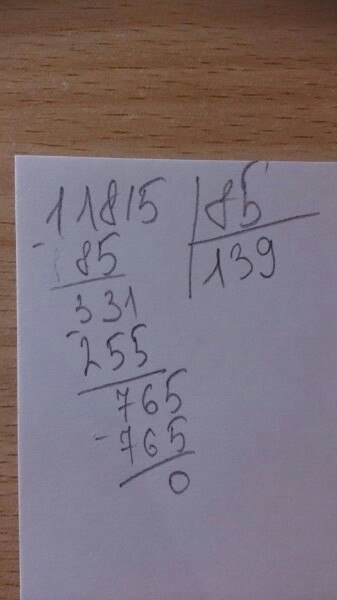 11815 | 85
- 85 | 139
331
- 255
765
- 765
0